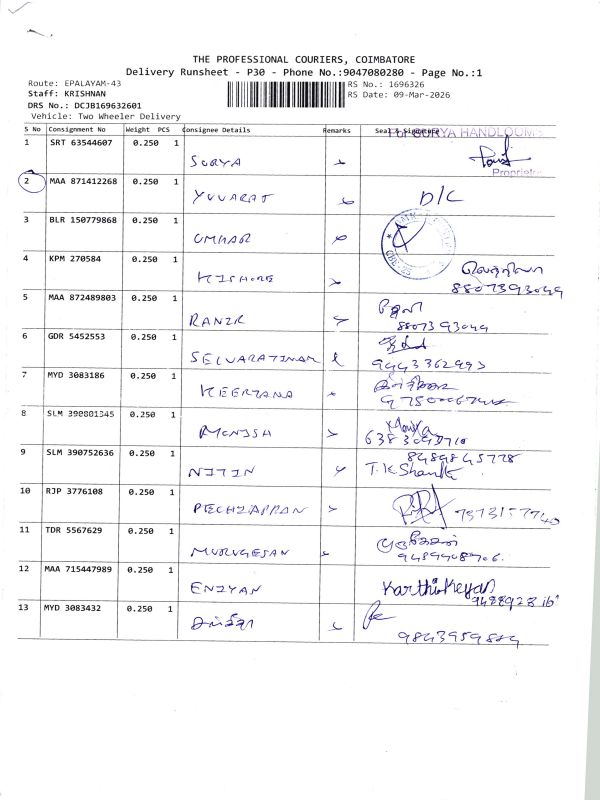 THE PROFESSIONAL COURIERS, COIMBATORE
Delivery Runsheet - P30 - Phone No.:9047080280 - Page No.:1
Route: EPALAYAM-43
Staff: KRISHNAN
DRS No.: DCJB169632601
Vehicle: Two Wheeler Delivery
RS No.: 1696326
RS Date: 09-Mar-2026
S No Consignment No Weight PCS Consignee Details Remarks Seal & Signature
For SURYA HANDLOOMS
1 SRT 63544607 0.250 1 SURYA
Proprietor
2 MAA 871412268 0.250 1 YUVARAJ D/C
3 BLR 150779868 0.250 1 UMHAR
4 KPM 270584 0.250 1 KISHORE
8807393049
5 MAA 872489803 0.250 1 RANJR
8807393049
6 GDR 5452553 0.250 1 SELVARATINAM
9443362993
7 MYD 3083186 0.250 1 KEERTANA
8 SLM 390801345 0.250 1 MONISH
9 SLM 390752636 0.250 1 NITIN
8489845778
T.K
10 RJP 3776108 0.250 1 PECHIAPPAN
7373157740
11 TDR 5567629 0.250 1 MURUGESAN
முருகேசன்
9489408706
12 MAA 715447989 0.250 1 ENIYAN
Karthikeyan
13 MYD 3083432 0.250 1